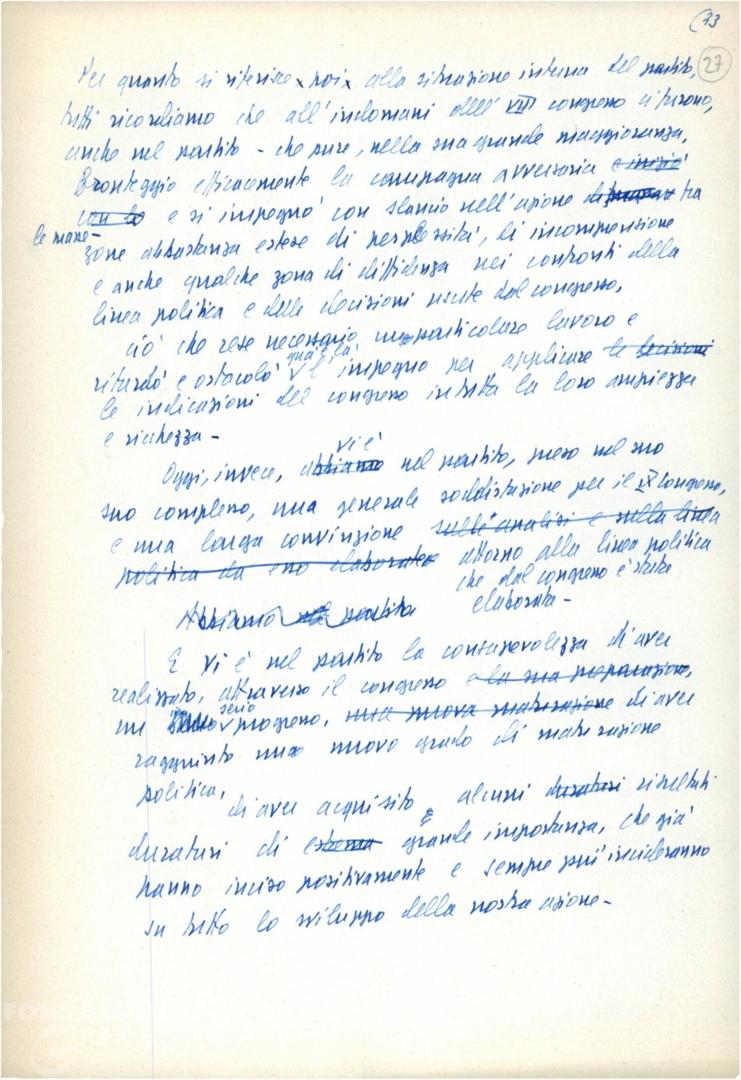 (33
27
Per quanto si riferisce poi alla situazione interna del partito,
tutti ricordiamo che all'indomani dell' VIII congresso ci furono,
anche nel partito - che pure, nella sua grande maggioranza,
fronteggiò efficacemente la campagna avversaria e iniziò
con lo e si impegnò con slancio nell'azione tra
le masse -
zone abbastanza estese di perplessità, di incomprensione
e anche qualche zona di diffidenza nei confronti della
linea politica e delle decisioni uscite dal congresso,
ciò che rese necessario un particolare lavoro e
ritardò e ostacolò qua e là l'impegno per applicare le decisioni
le indicazioni del congresso in tutta la loro ampiezza
e ricchezza -
Oggi, invece, abbiamo vi è nel partito, preso nel suo
suo complesso, una generale soddisfazione per il IX Congresso,
e una larga convinzione sull'analisi e sulla linea
politica da esso elaborate attorno alla linea politica
che dal congresso è stata
elaborata -
Abbiamo nel partito
E vi è nel partito la consapevolezza di aver
realizzato, attraverso il congresso e la sua preparazione,
un serio progresso, una nuova maturazione di aver
raggiunto un nuovo grado di maturazione
politica,
di aver acquisito alcuni duraturi risultati
duraturi di estrema grande importanza, che già
hanno inciso positivamente e sempre più incideranno
su tutto lo sviluppo della nostra azione -